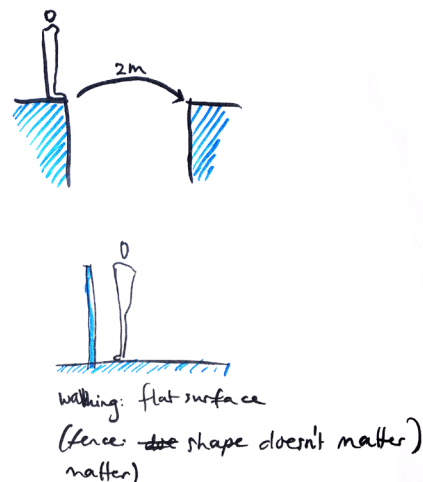 2m
walking: flat surface
(fence: shape doesn't matter)
matter)